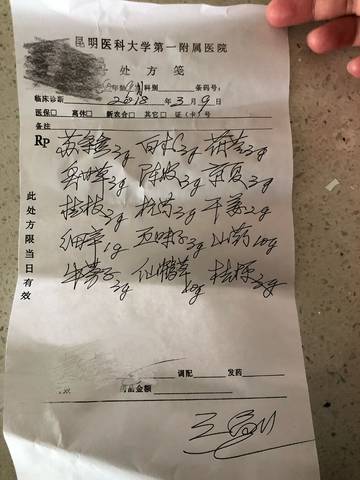 昆明医科大学第一附属医院
处方笺
科别 条药号:
临床诊断 2018年3月9日
医保□ 离休□ 新农合□ 其它□ 证(卡)号
备注
Rp
3g 3g 茯苓3g
3g 陈皮3g 京夏3g
桂枝3g 杭芍3g 干姜2g
细辛1g 五味子3g 山药10g
牛蒡子3g 仙鹤草10g 桔梗3g
此处方限当日有效
调配 发药
药品金额